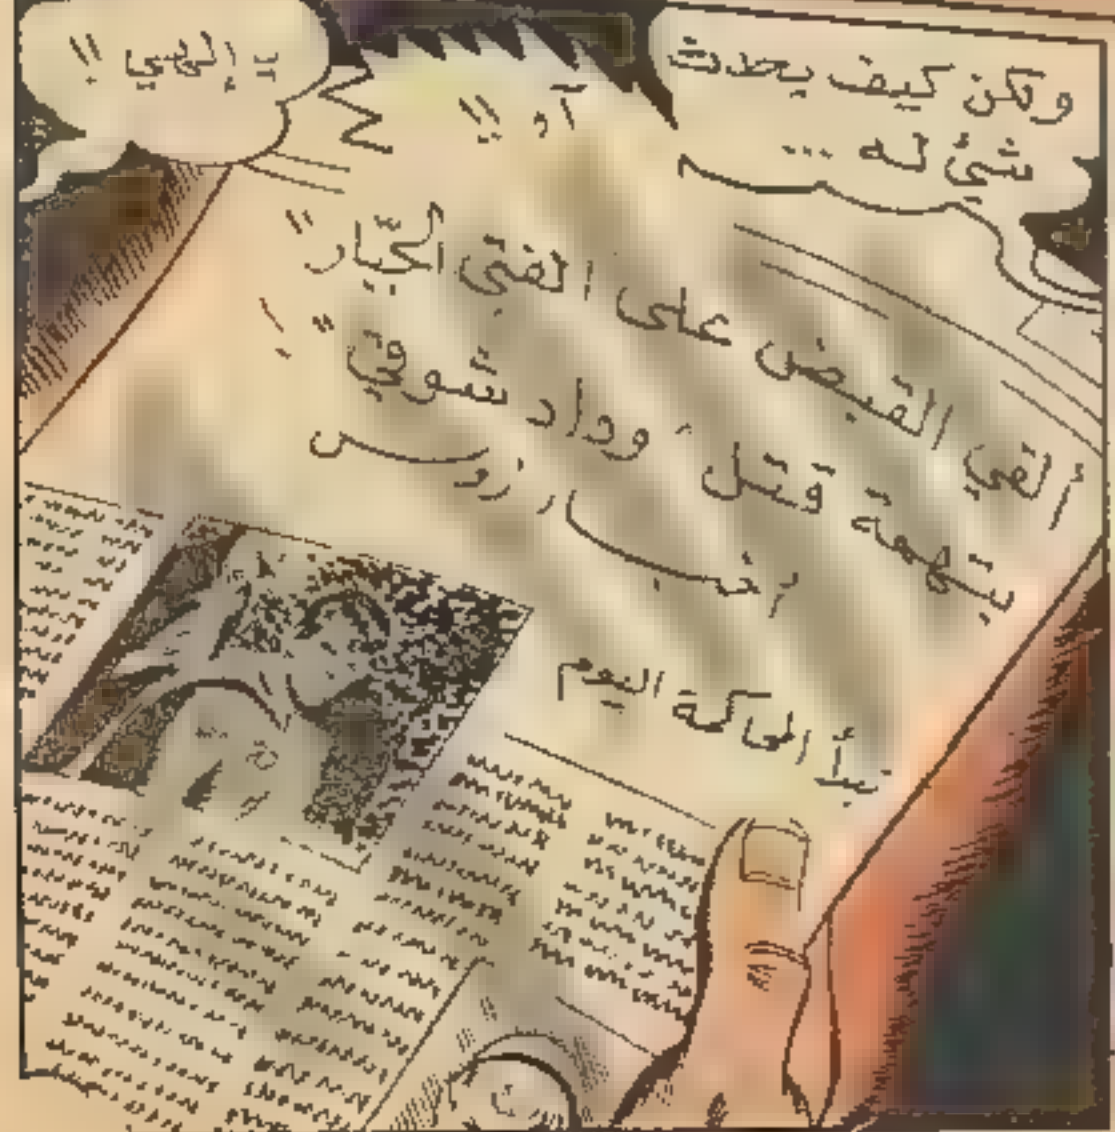 ولكن كيف يحدث
شئ له ...
آو !!
يـ إلهي !!
ألقي القبض على الفتى الجبّار"
بتهمة قتل "وداد شوقي" !
اخبار زوس
تبدأ المحاكمة اليوم